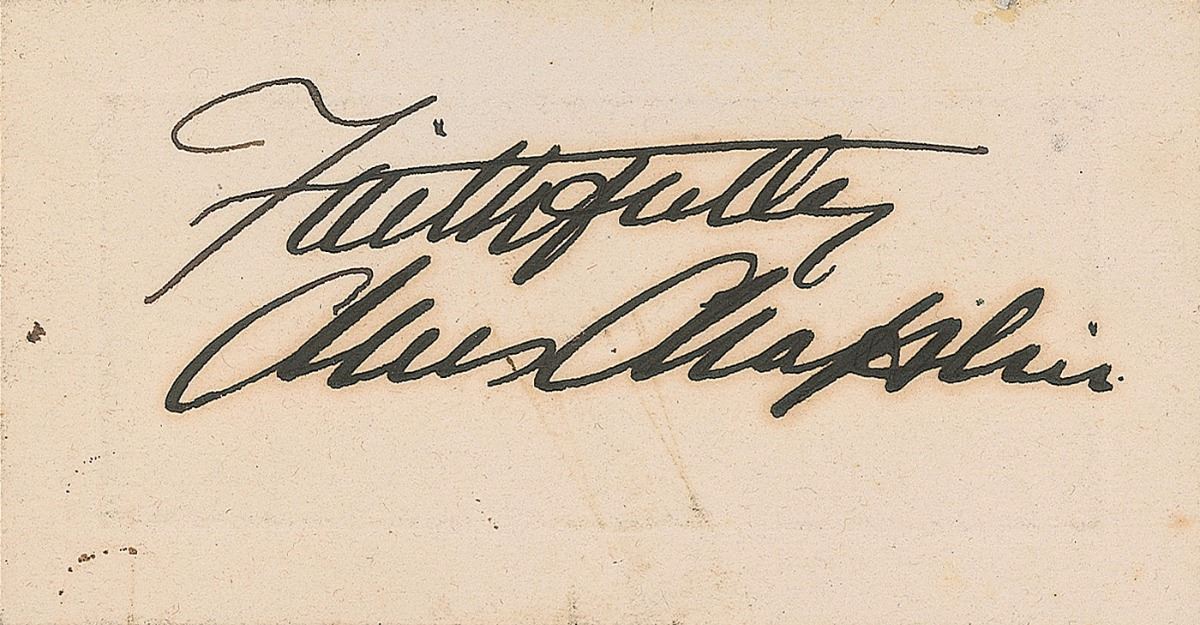 Faithfully
Chas Chaplin